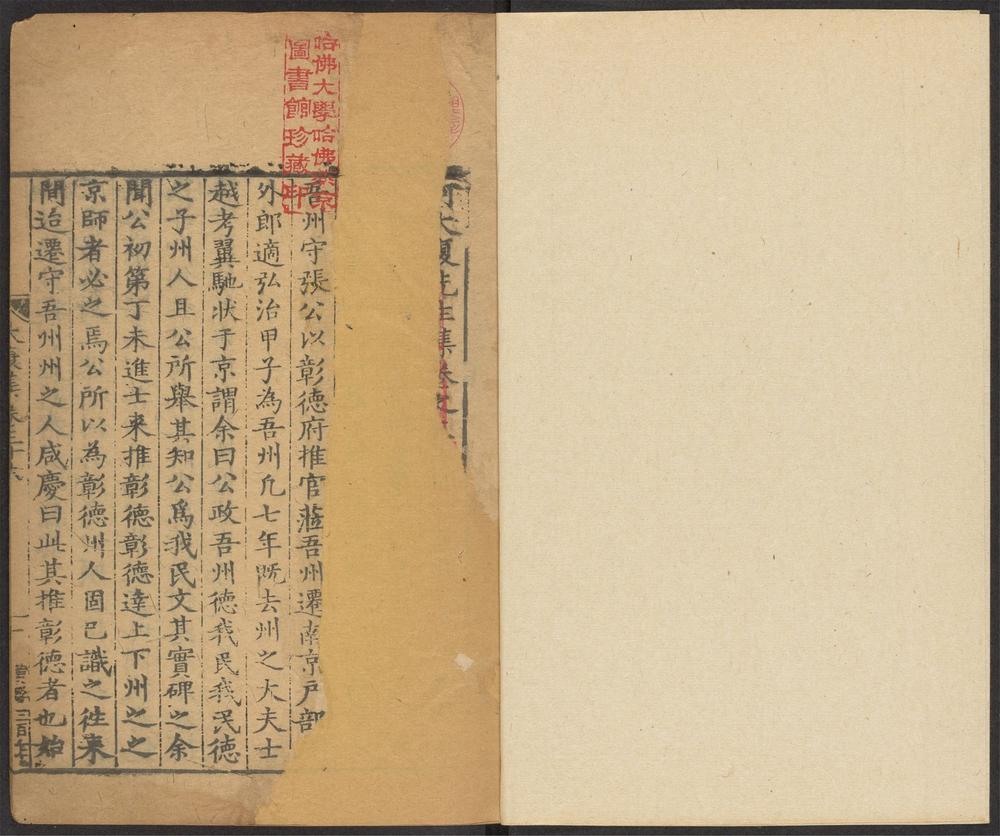 何大復先生集卷之
吾州守張公以彰德府推官蒞吾州遷南京戶部
外郎適弘治甲子為吾州凡七年既去州之大夫士
越考翼馳状于京謂余曰公政吾州德我民我民德
之子州人且公所舉其知公爲我民文其實碑之余
聞公初第丁未進士来推彰德彰德達上下州之之
京師者必之焉公所以為彰德州人固已識之徃来
間迨遷守吾州州之人咸慶曰此其推彰德者也始
大復集卷三十
哈佛大學哈佛燕京
圖書館珍藏印